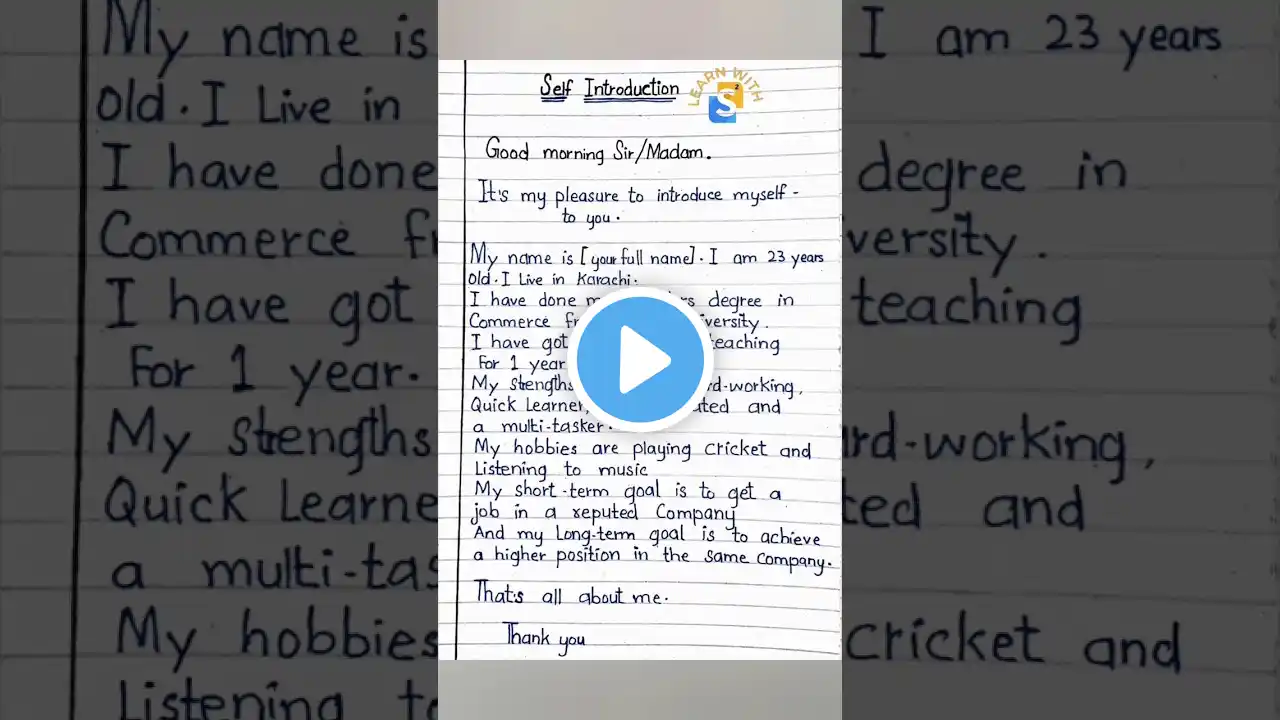 LEARN WITH
S²
Self Introduction
Good morning Sir/Madam.
It's my pleasure to introduce myself -
to you.
My name is [your full name]. I am 23 years
old. I Live in Karachi.
I have done degree in
Commerce
I have got teaching
For 1 year
My stengths
Quick Learner, and
a multi-tasker.
My hobbies are playing cricket and
Listening to music
My short-term goal is to get a
job in a reputed Company
And my Long-term goal is to achieve
a higher position in the same company.
That's all about me.
Thank you